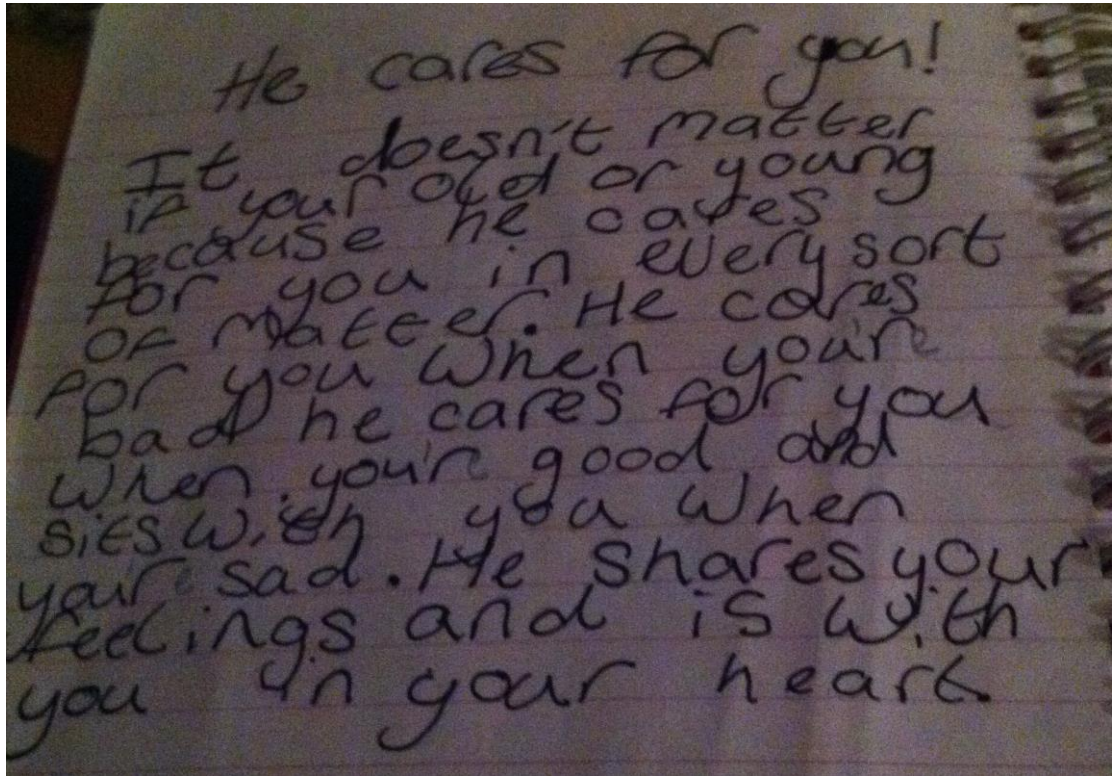 He cares for you!
It doesn't matter
if your old or young
because he cares
for you in every sort
of matter. He cares
for you when you're
bad he cares for you
when you're good and
sits with you when
your sad. He shares your
feelings and is with
you in your heart.